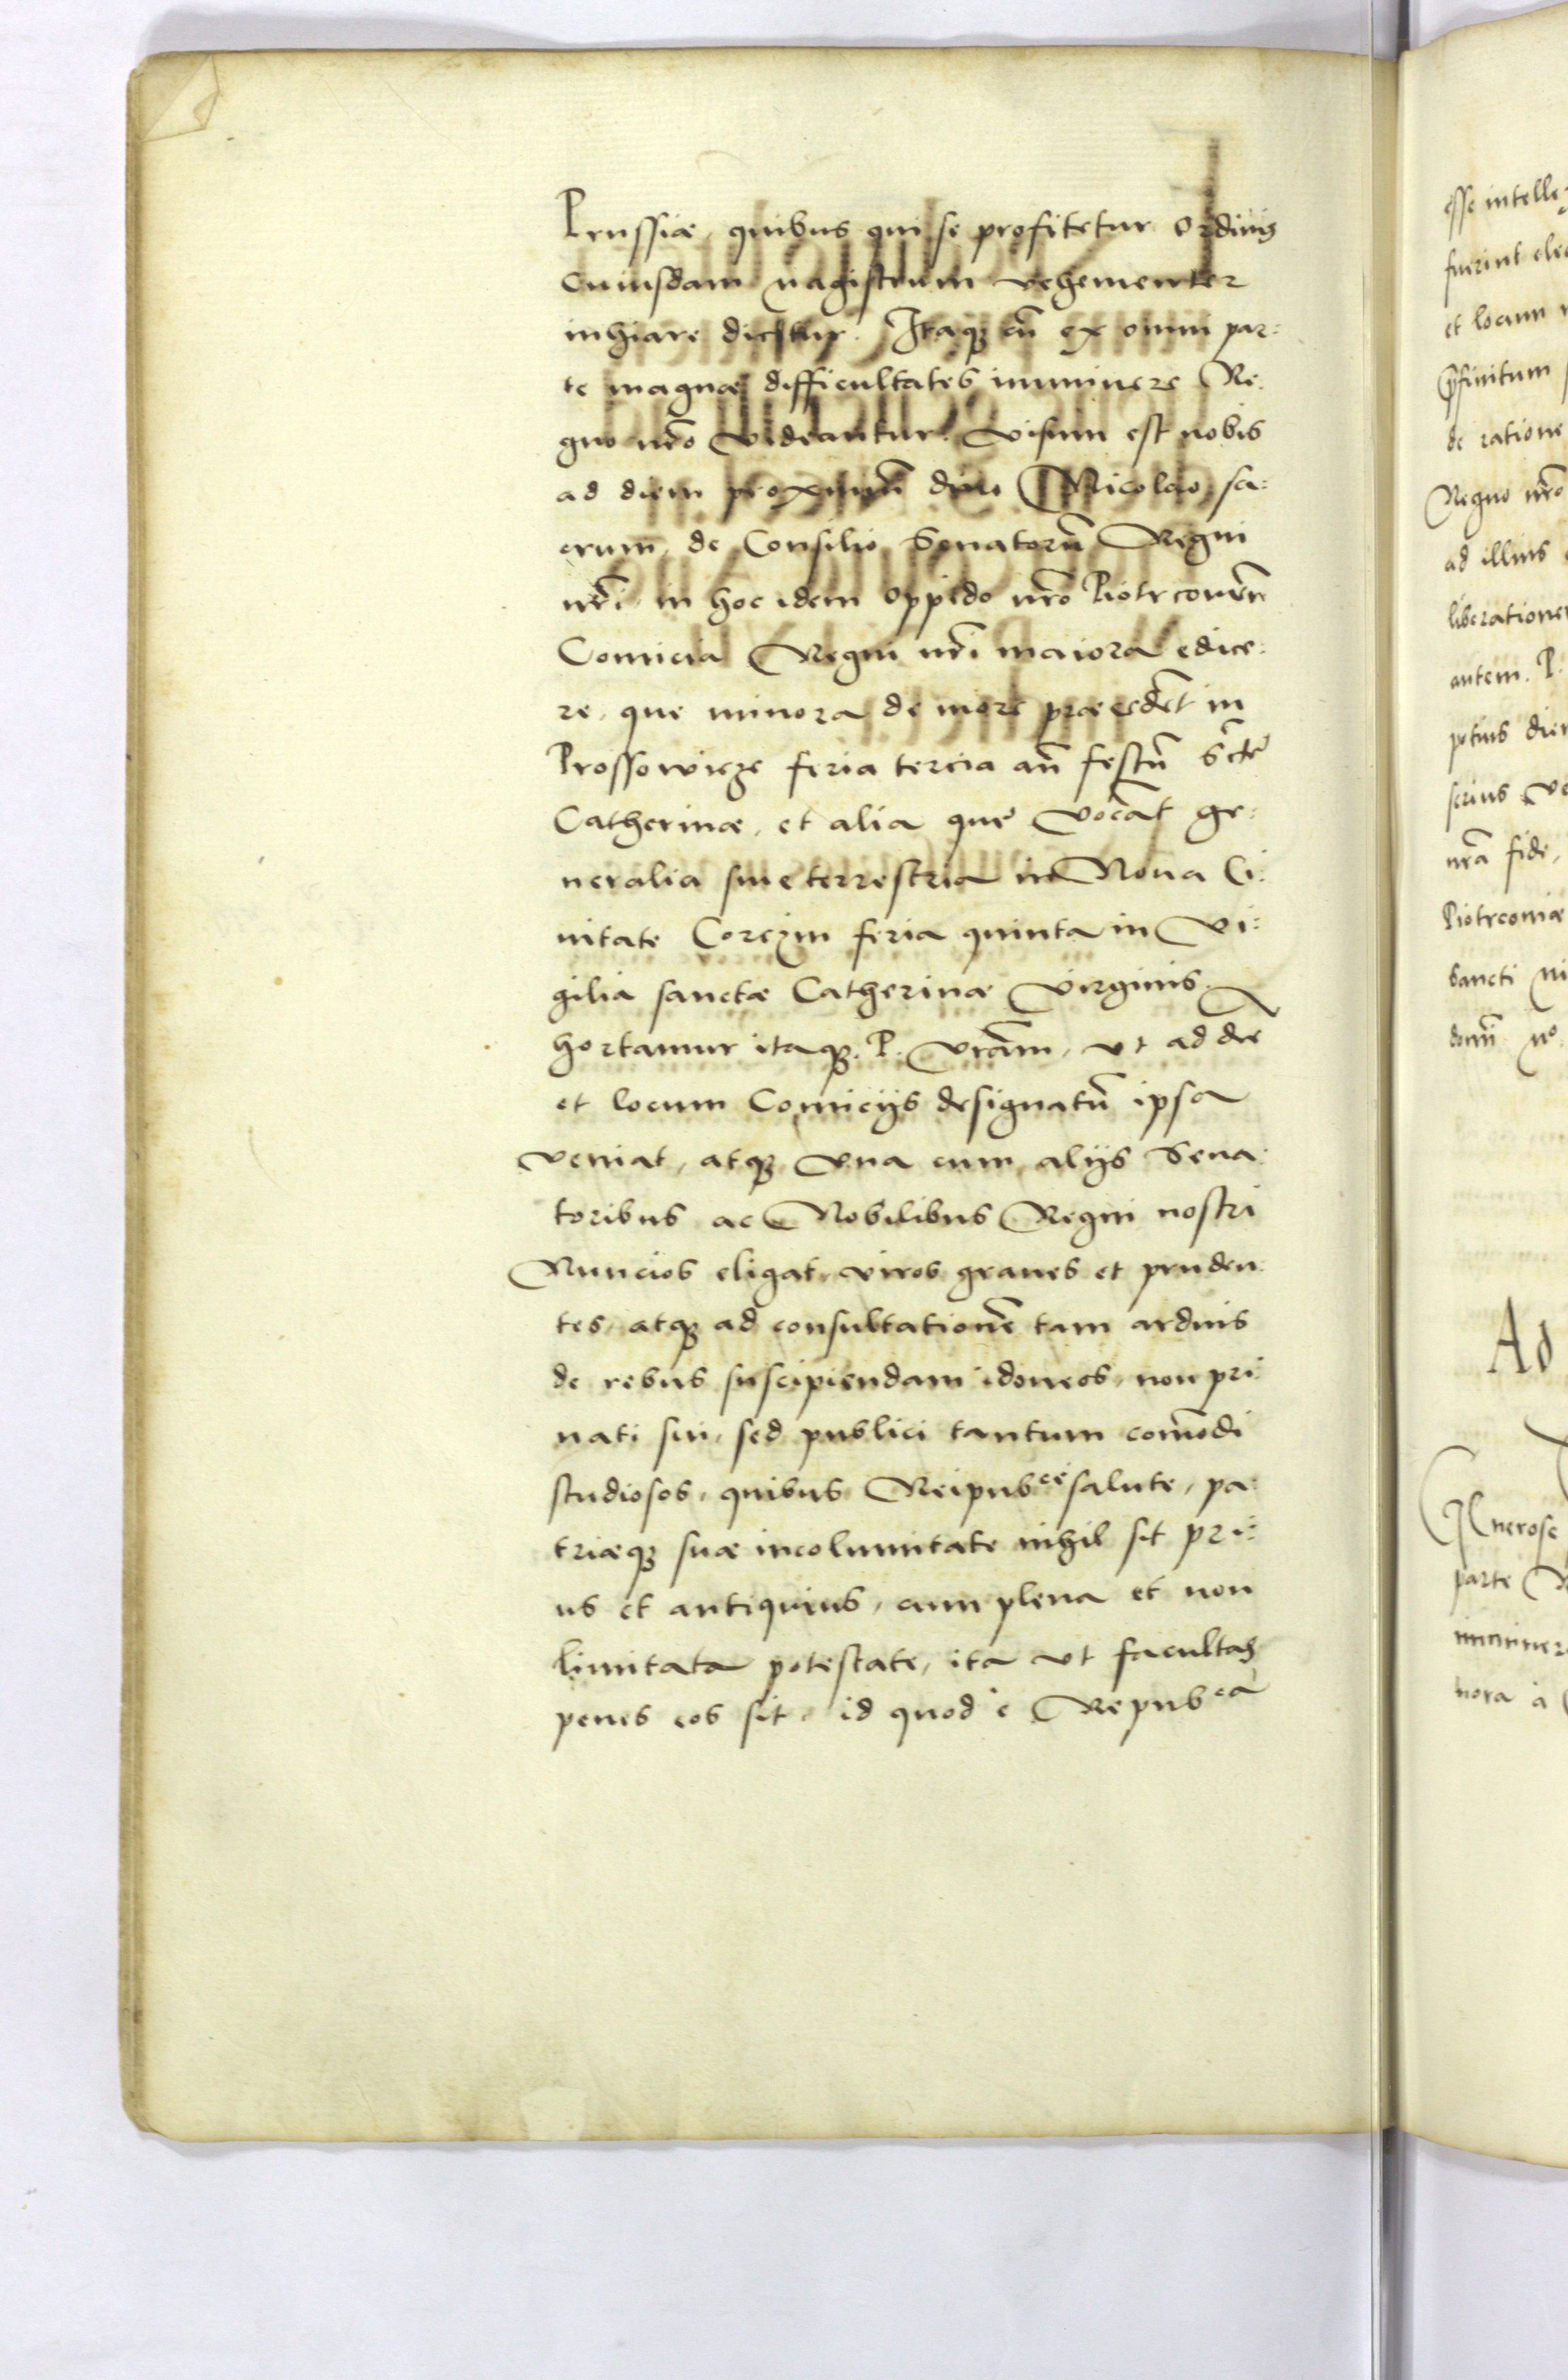 Prussiæ, quibus qui se profitetur Ordinis
cuiusdam magistrum vehementer
inhiare dicitur. Itaqꝫ cū ex omni par:
te magnæ difficultates imminere Re:
gno nr̄o videantur. Visum est nobis
ad diem proximū diuo Nicolao sa:
crum, de Consilio Senatorū Regni
nr̄i in hoc idem oppido nr̄o Piotrcouien̄
Comicia Regni nr̄i maiora edice:
re, que minora de more præcedēt in
Prossowicze feria tercia añ festū Scte
Catherinæ, et alia que vocāt ge:
neralia siue terrestria in Noua Ci:
uitate Corczin feria quinta in Vi:
gilia sanctæ Catherinæ Virginis.
hortamur itaqꝫ. P. Vrām, vt ad diē
et locum Comicijs designatū ipsa
veniat, atqꝫ vna cum alijs Sena
toribus ac Nobilibus Regni nostri
Nuncios eligat viros graues et pruden
tes, atqꝫ ad consultationē tam arduis
de rebus suscipiendam idoneos, non pri
uati sui, sed publici tantum com̄odi
studiosos, quibus Reipubᶜᵉ salute, pa
triæqꝫ suæ incolumitate nihil sit pri:
us et antiquius, cum plena et non
limitata potestate, ita vt facultas
penes eos sit, id quod è Repubᶜᵃ
esse intelle
fuerint elec
et locum
p̄finitum
de ratione
Regno nr̄o
ad illius
liberatione
autem. P.
potius die
serius
nrā fide,
Piotrcouiæ
Sancti
Ad
Generose
parte
imminer
nora à